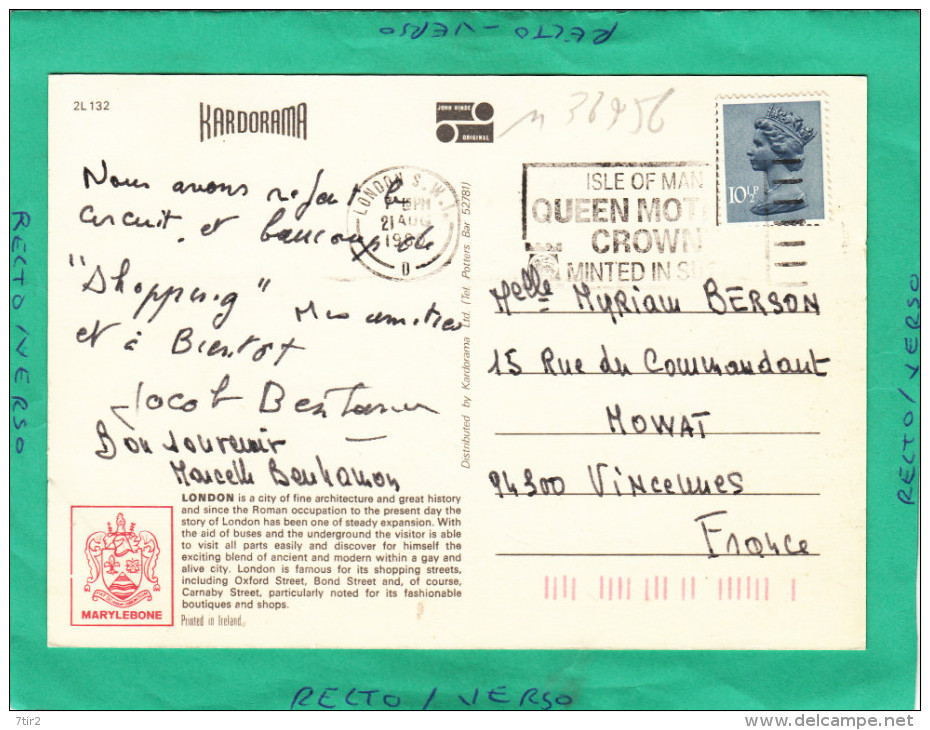 RECTO - VERSO
2L 132
KARDORAMA
JOHN HINDE
ORIGINAL
Nous avons refait le
circuit, et beaucoup de
"Shopping"
Mes amities
et à Bientot
Jacob
Bon souvenir
Marcelle Benhamou
LONDON S.W.1.
PM
21 AUG
198
D
ISLE OF MAN
QUEEN MOT
CROWN
MINTED IN
10½P
Melle Myriam BERSON
15 Rue du Commandant
MOWAT
94300 Vincennes
France
Distributed by Kardorama Ltd. (Tel. Potters Bar 52781)
LONDON is a city of fine architecture and great history
and since the Roman occupation to the present day the
story of London has been one of steady expansion. With
the aid of buses and the underground the visitor is able
to visit all parts easily and discover for himself the
exciting blend of ancient and modern within a gay and
alive city. London is famous for its shopping streets,
including Oxford Street, Bond Street and, of course,
Carnaby Street, particularly noted for its fashionable
boutiques and shops.
Printed in Ireland.
MARYLEBONE
RECTO / VERSO
RECTO / VERSO
RECTO / VERSO
7tir2
www.delcampe.net